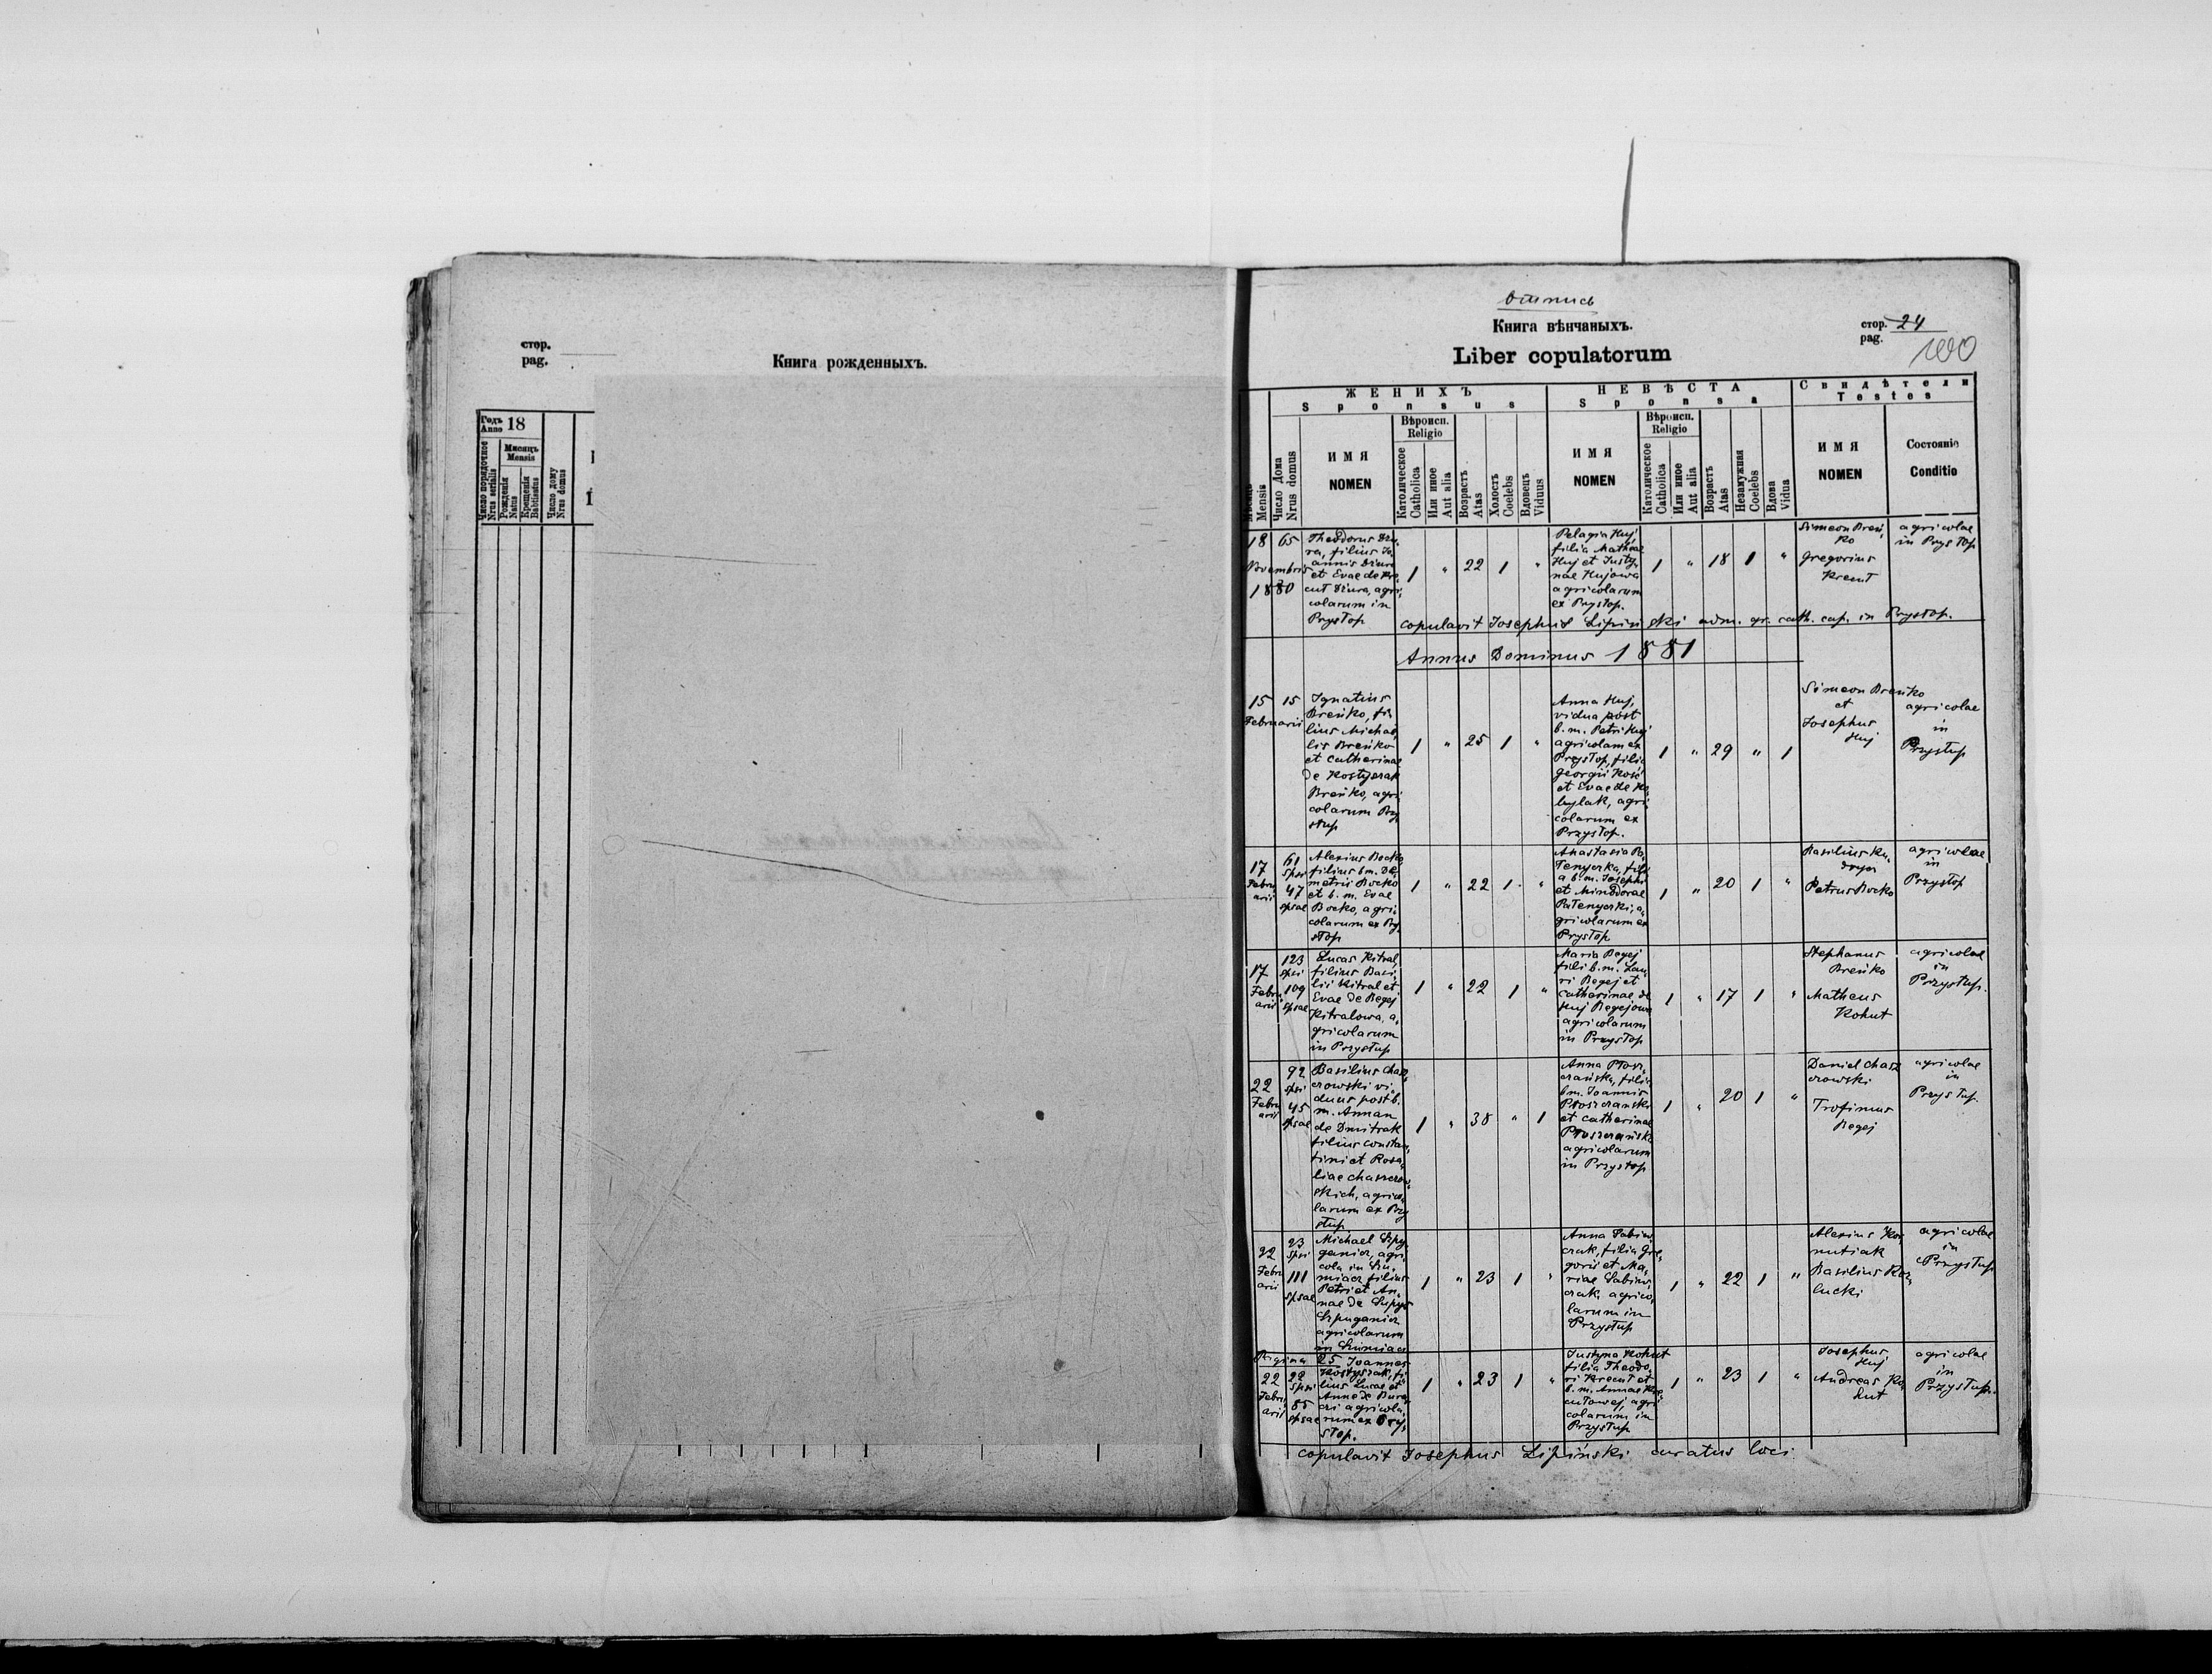 стор.
pag.
Книга рожденныхъ.
Годъ
Anno 18
Число порядочное
Nrus serialis
Мѣсяцъ
Mensis
Рожденія
Natus
Крещенія
Batisatus
Число дому
Nrus domus
Отпись
Книга вѣнчаныхъ.
Liber copulatorum
стор. 24
pag.
100
Мѣсяць
Mensis
Число Дома
Nrus domus
ЖЕНИХЪ
Sponsus
ИМЯ
NOMEN
Вѣроисп.
Religio
Католическое
Catholica
Или иное
Aut alia
Возрастъ
Atas
Холостъ
Coelebs
Вдовецъ
Viduus
НЕВѢСТА
Sponsa
ИМЯ
NOMEN
Вѣроисп.
Religio
Католическое
Catholica
Или иное
Aut alia
Возрастъ
Atas
Незамужная
Coelebs
Вдова
Vidua
Свидѣтели
Testes
ИМЯ
NOMEN
Состояніе
Conditio
18
Novembris
1880
65
Theodorus Dziu,
ra, filius Jo,
annis Dziura
et Evae de Kre,
cut Dziura, agri,
colarum in
Prystop
1 " 22 1 "
Pelagia Huj,
filia Matheae
Huj et Justy,
nae Hujowa
agricolarum
ex Prystop.
1 " 18 1 "
Simeon Breń,
ko
Gregorius
Krecut
agricolae
in Prystop
copulavit Josephus Lipiński adm. gr. cath. cap. in Prystop.
Annus Dominus 1881
15
Februarii
15
Ignatius
Breńko, fi,
lius Michae,
lis Breńko
et Catherinae
de Kostyszak
Breńko, agri
colarum Prz
ystup
1 " 25 1 "
Anna Huj,
vidua post
b.m. Petri Huj
agricolam ex
Przystop, filia
Georgii Kosć
et Evae de Ko
bylak, agri
colarum ex
Przystop.
1 " 29 " 1
Simeon Breńko
et
Josephus
Huj
agricolae
in
Przystup
17
Febru
arii
61
spsi
47
spsae
Alexius Bocko
filius b.m. De
metrii Bocko
et b. m. Evae
Bocko, agri,
colarum ex Pry
stop
1 " 22 1 "
Anastasia Pa
tenycka, fili
a b.m. Josephi
et Minodorae
Patenycki, a,
gricolarum ex
Prystop
1 " 20 1 "
Basilius Ku,
dryn
Petrus Bocko
agricolae
in
Przystop
17
Febru
arii
123
spsi
109
spsae
Lucas Kitral,
filius Basi,
lii Kitral et
Evae de Begej
Kitralowa, a,
gricolarum
in Przystup
1 " 22 1 "
Maria Begej
fili b.m. Lau
ri Begej et
Catherinae de
Huj Begejowa
agricolarum
in Przystop
1 " 17 1 "
Stephanus
Breńko
Matheus
Kohut
agricolae
in
Przystup.
22
Febru
arii
92
spsi
45
spsae
Basilius Chasz,
czowski vi,
duus post b.
m. Annan
de Dmitrak
filius Constan,
tini et Rosa,
liae Chaszczow,
skich, agrico,
larum ex Prz
ystup
1 " 38 " 1
Anna Ptosz,
czańska, filia
b.m. Joannis
Ptoszczanski
et Catherinae
Ptoszczańska
agricolarum
in Przystop
1 " 20 1 "
Daniel Chasz
czowski
Trofimus
Begej
agricolae
in
Przystup.
22
Febru
arii
23
spsi
111
spsae
Michael Szpy
ganicz, agri,
cola in Szu,
miacz filius
Petri et An,
nae de Szpyr
Szpyganicz
agricolarum
in Szumiacz
1 " 23 1 "
Anna Sabin,
czak, filia Gre,
gorii et Ma,
riae Sabin,
czak, agrico,
larum in
Przystup
1 " 22 1 "
Alexius Kor
nutiak
Basilius Koz,
lucki
agricolae
in
Przystup
Pagina 25
22
Febru
arii
22
spsi
85
spsae
Joannes
Kostyszak, fi
lius Lucae et
Annae de Bura
czi agricola,
rum ex Pry,
stop.
1 " 23 1 "
Justyna Kohut
filia Theodo,
ri Krecut et
b.m. Annae Kre,
cutowej, agri
colarum in
Przystup
1 " 23 1 "
Josephus
Huj
Andreas Ko
hut
agricolae
in
Przystup.
copulavit Josephus Lipiński curatus loci